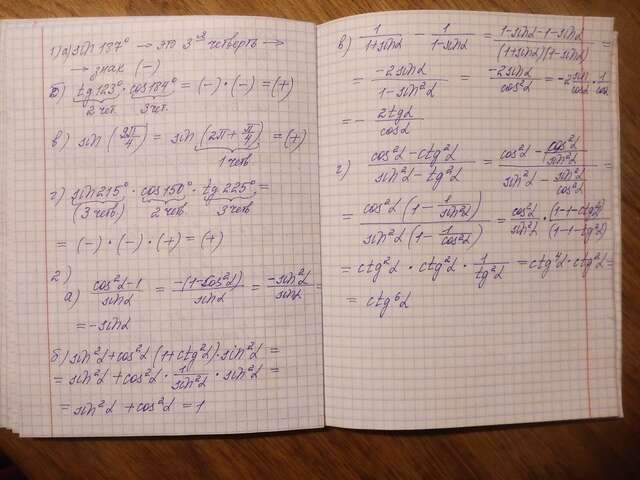 1) а) sin 187° → это 3-я четверть →
→ знак (-)
б) tg 123° · cos 184° = (-) · (-) = (+)
2 чет. 3 чет.
в) sin (9π/4) = sin (2π + π/4) = (+)
1 четв.
г) sin 215° · cos 150° · tg 225° =
(3 четв) 2 четв. 3 четв
= (-) · (-) · (+) = (+)
2)
а) cos²α - 1 / sinα = -(1 - cos²α) / sinα = -sin²α / sinα =
= -sinα
б) sin²α + cos²α (1 + ctg²α) · sin²α =
= sin²α + cos²α · 1/sin²α · sin²α =
= sin²α + cos²α = 1
в) 1/(1+sinα) - 1/(1-sinα) = (1-sinα-1-sinα) / (1+sinα)(1-sinα) =
= -2sinα / (1-sin²α) = -2sinα / cos²α = -2 sinα/cosα · 1/cosα
= - 2tgα / cosα
г) (cos²α - ctg²α) / (sin²α - tg²α) = (cos²α - cos²α/sin²α) / (sin²α - sin²α/cos²α) =
= cos²α (1 - 1/sin²α) / sin²α (1 - 1/cos²α) = cos²α/sin²α · (1-1-ctg²α) / (1-1-tg²α)
= ctg²α · ctg²α · 1/tg²α = ctg⁴α · ctg²α =
= ctg⁶α